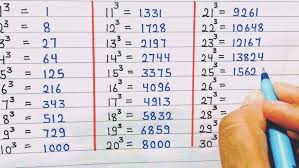 1³ = 1
2³ = 8
3³ = 27
4³ = 64
5³ = 125
6³ = 216
7³ = 343
8³ = 512
9³ = 729
10³ = 1000
11³ = 1331
12³ = 1728
13³ = 2197
14³ = 2744
15³ = 3375
16³ = 4096
17³ = 4913
18³ = 5832
19³ = 6859
20³ = 8000
21³ = 9261
22³ = 10648
23³ = 12167
24³ = 13824
25³ = 1562
26³ =
27³ =
28³ =
29³
30³